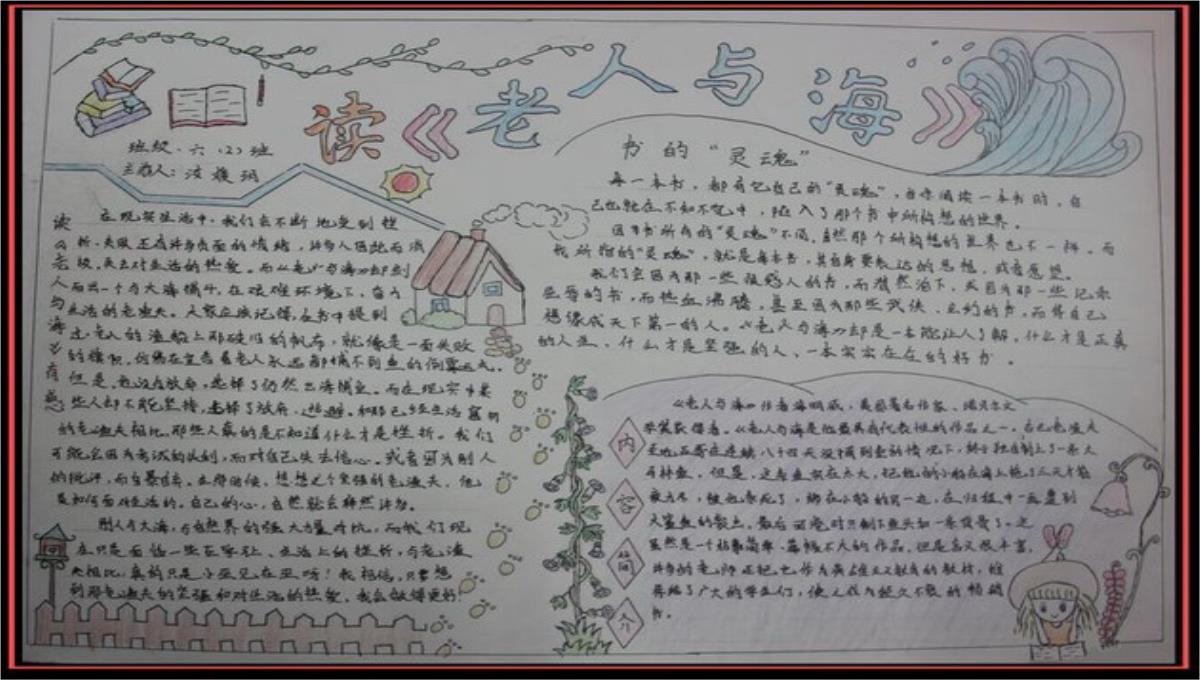 读《老人与海》
班级:六（2）班
主办人:
读《老人与海》有感
在现实生活中，我们会不断地受到挫
折、失败
去对生活的热爱。而《老人与海》却刻
画出一个与大海搏斗，在艰难环境下，奋力
生活的老渔夫。大家应该记得，在书中提到
过，老人的渔船上那破旧的帆布，就像是一面失败
的旗帜，仿佛在宣告着老人永远都捕不到鱼的倒霉运气。
但是，他没有放弃，选择了仍然出海捕鱼。而在现实中某
些人却不能坚持，选择了放弃，逃避。和那已经生活窘困
的老渔夫相比，那些人真的是不知道什么才是挫折。我们
可能会因为考试的失利，而对自己失去信心。或者因为别人
的批评，而自暴自弃。在那时候，想想这个坚强的老渔夫，他
是如何面对生活的，自己的心，自然就会释然许多。
别人与大海，与自然界的强大力量对抗，而我们现
在只是面临一些在学习上、生活上的挫折，与老渔
夫相比，真的只是小巫见大巫呀！我相信，只要想
到那老渔夫的坚强和对生活的热爱，我会做得更好！
书的“灵魂”
每一本书，都有它自己的“灵魂”，当你阅读一本书时，自
己也就在不知不觉中，陷入了那个书中所构想的世界。
因为书所有的“灵魂”不同，自然那个所构想的世界也不一样。而
我所指的“灵魂”，就是每本书，其自身要表达的思想，或者愿望。
我们会因为那一些很感人的书，而潸然泪下，又因为那一些记录
屈辱的书，而热血沸腾，甚至因为那些武侠、的书，而将自己
想像成天下第一的人。《老人与海》却是一本能让人了解，什么才是正真
的人生，什么才是坚强的人，一本实实在在的好书。
内容简介
《老人与海》作者海明威，美国著名作家、诺贝尔文
学奖获得者。《老人与海》是他最具有代表性的作品之一。古巴老渔夫
圣地亚哥在连续八十四天没捕到鱼的情况下，终于独自钓上了一条大
马林鱼，但是，这鱼实在太大，把他的小船在海上拖了三天才筋
疲力尽，被他杀死了，绑在小船的另一边，在归程中一再遭到
大鲨鱼的袭击，最后回港时只剩下鱼头和一条脊骨了。这
虽然是一个故事简单、篇幅不大的作品，但是含义很丰富，
许多的老师还把它作为英雄主义教育的教材，
了广大的学生们，使之成为经久不衰的畅销
书。